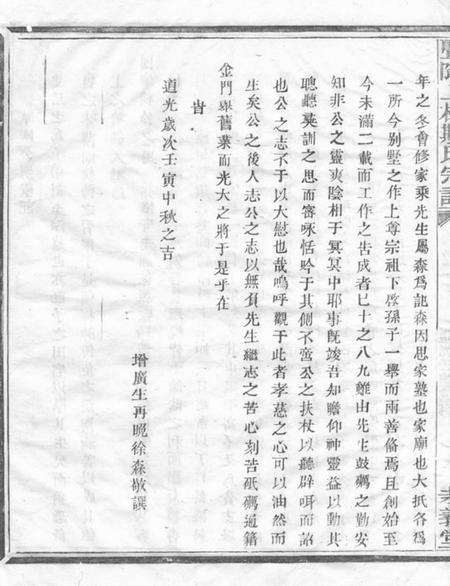 年之冬會修家乘先生屬森爲記森因思家塾也家廟也大抵各爲
一所今別墅之作上尊宗祖下啓孫子一舉而兩善備焉且創始至
今未滿二載而工作之告成者已十之八九雖由先生鼓礪之勤安
知非公之靈爽陰相于冥冥中耶事旣竣吾知瞻仰神靈益以動其
聰聽彝訓之思而審咏恬吟于其側不啻公之扶杖以聽辟咡而詔
也公之志不于以大慰也哉嗚呼觀于此者孝慈之心可以油然而
生矣公之後人志公之志以無負先生繼志之苦心刻苦砥礪通籍
金門舉舊業而光大之將于是乎在
旹
道光歲次壬寅中秋之吉
增廣生再晚徐森敬譔
孝義堂